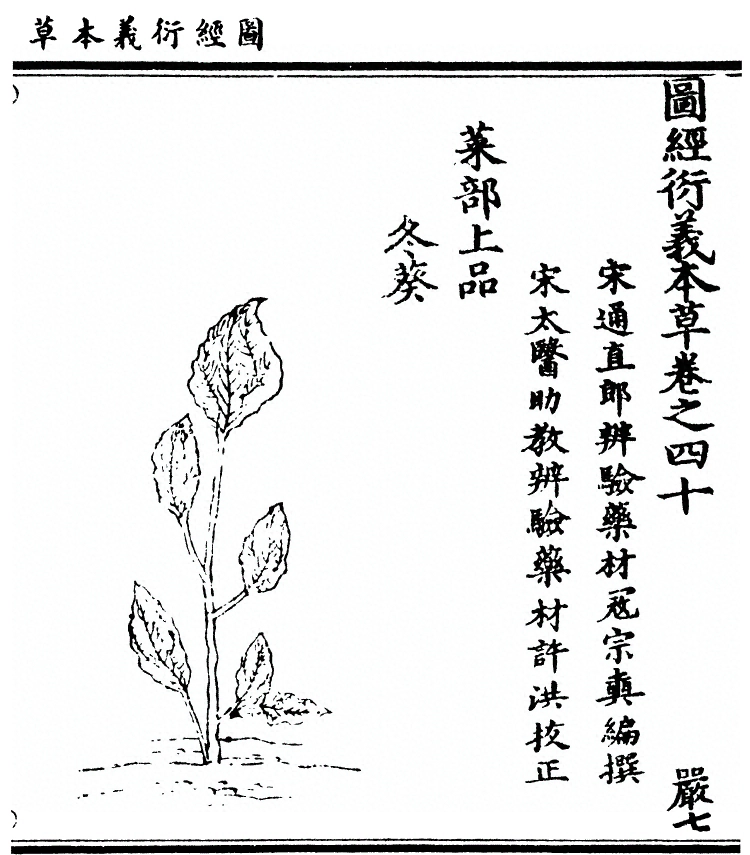 草本義衍經圖
圖經衍義本草卷之四十
嚴七
宋通直郎辨驗藥材寇宗奭編撰
宋太醫助教辨驗藥材許洪挍正
菜部上品
冬葵